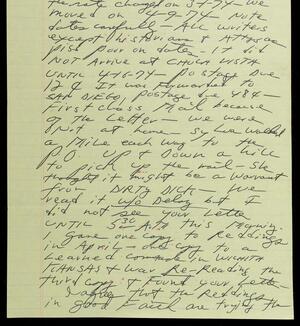 the rate change on 3-7-74 - we
moved on 4-9-74 note
dates carefull - ALL writers
except historians &
piss poor on dates - it did
NOT Arrive at CHULA VISTA
UNTIL 4-16-74 - postage due
12¢ it was forwarded to
SAN DIEGO, postage due 48¢ -
first class mail because
of the Letter - we were
Not at home - so we walked
a mile each way to the
P.O. up & down a hill
to pick up the mail - she
thought it might be a warrant
from DIRTY DICK - we
read it w/o Delay but I
did not see your Letter
UNTIL 5:30 this morning.
I gave one copy to Readings
in April - one copy to a
Learned in WICHITA
KANSAS & was Re-Reading the
third copy & found your Letter -
I that the Readings
in Good Faith are trying the